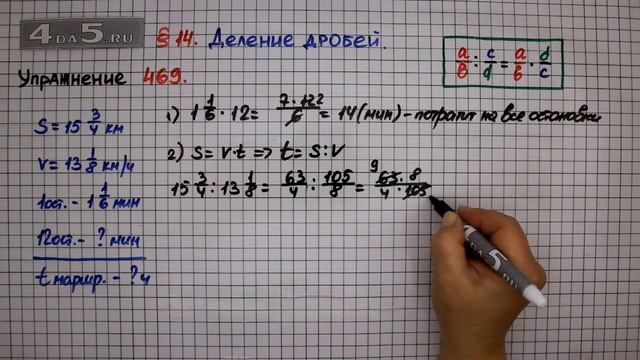 4DA5.RU
§ 14. Деление дробей.
a/b : c/d = a/b · d/c
Упражнение 469.
S = 15 3/4 км
V = 13 1/8 км/ч
1ост. - 1 1/6 мин
12ост. - ? мин
t маршр. - ? ч
1) 1 1/6 · 12 = 7 · 12 2/6 = 14 (мин) - потратит на все остановки
2) S = V·t => t = S:V
15 3/4 : 13 1/8 = 63/4 : 105/8 = 9 63 · 8/4 · 105
4DA5.RU